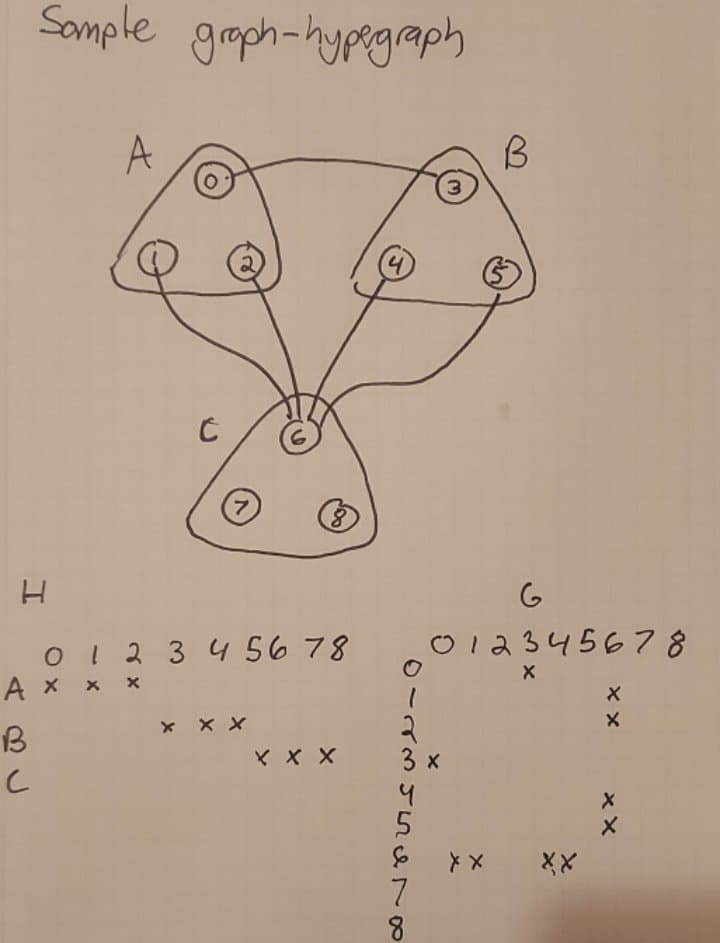 Sample graph-hypegraph
A B
0 3
1 2 4 5
C
6
7 8
H G
0 1 2 3 4 5 6 7 8
A x x x
B x x x
C x x x
0 1 2 3 4 5 6 7 8
0 x
1 x
2 x
3 x
4 x
5 x
6 x x x x
7
8